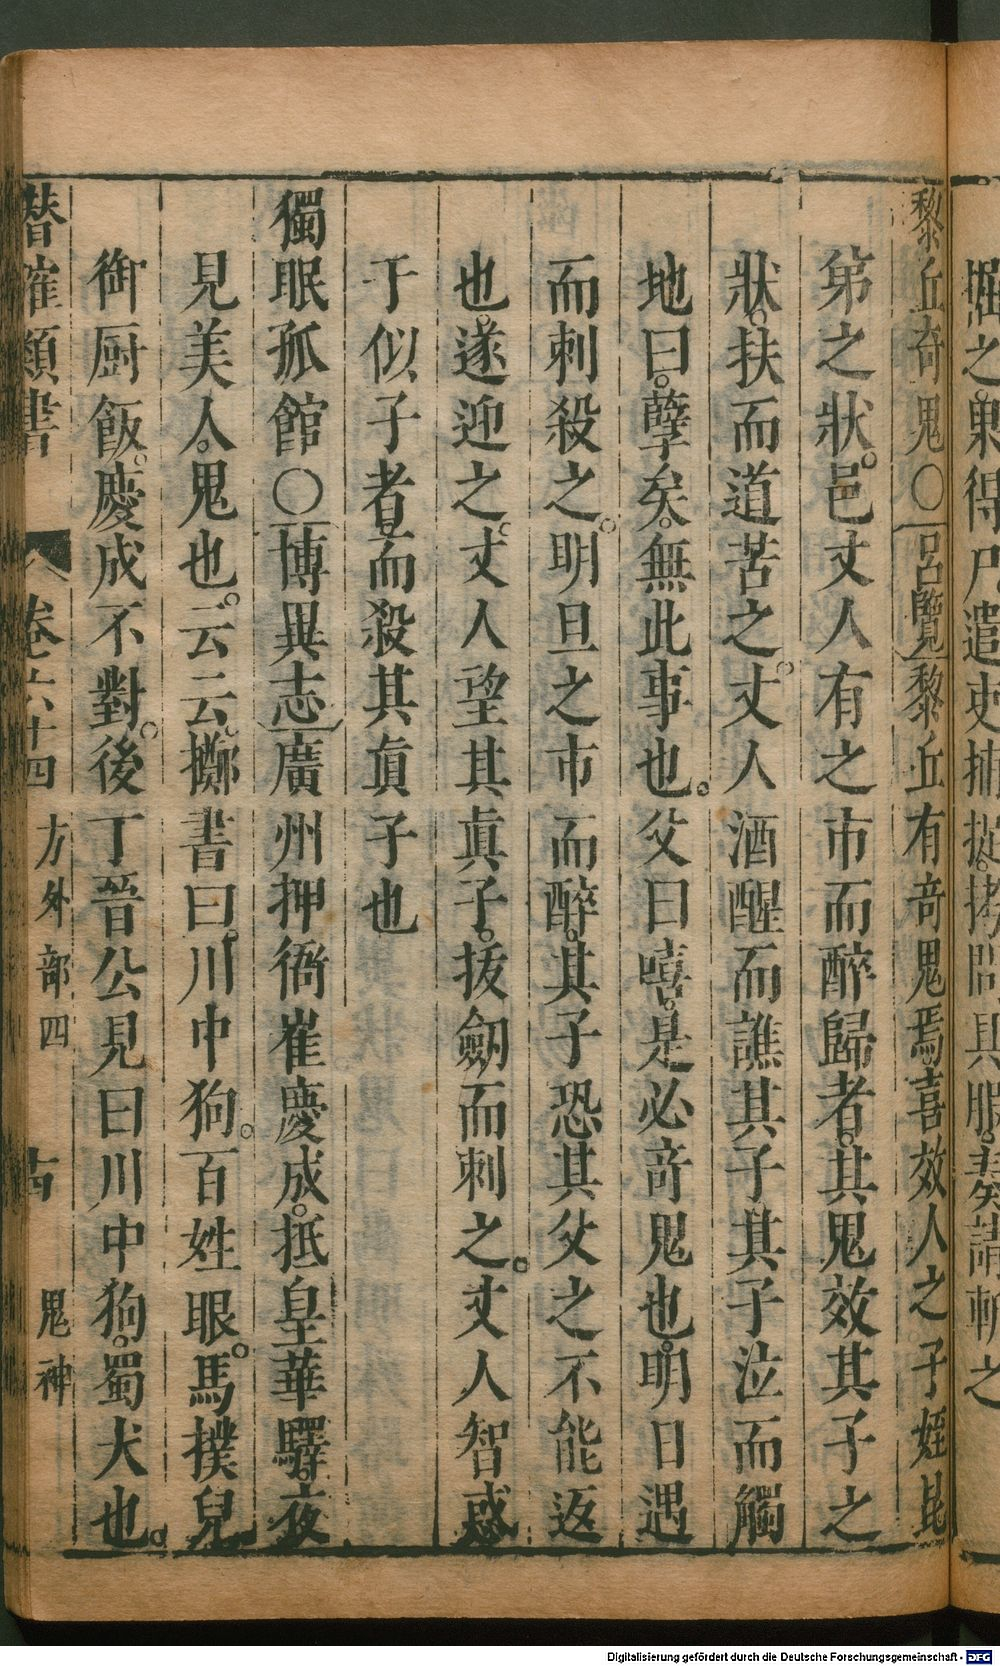 掘之果得尸遣吏捕 拷問具服 請斬之
黎丘奇鬼○呂覽黎丘有奇鬼焉喜效人之子姪昆
第之狀。邑丈人有之市而醉歸者。其鬼效其子之
狀。扶而道苦之。丈人酒醒而譙其子其子泣而觸
地曰。孽矣。無此事也。父曰嘻。是必奇鬼也。明日遇
而刺殺之。明旦之市而醉。其子恐其父之不能返
也。遂迎之。丈人望其眞子。拔劒而刺之。丈人智惑
于似子者。而殺其眞子也
獨眠孤館○博異志廣州押衙崔慶成。抵皇華驛。夜
見美人。鬼也。云云。擲書曰。川中狗。百姓眼。馬撲兒
御厨飯。慶成不對。後丁晉公見曰川中狗。蜀犬也。
潛確類書 卷六十四 方外部四 古 鬼神
Digitalisierung gefördert durch die Deutsche Forschungsgemeinschaft - DFG